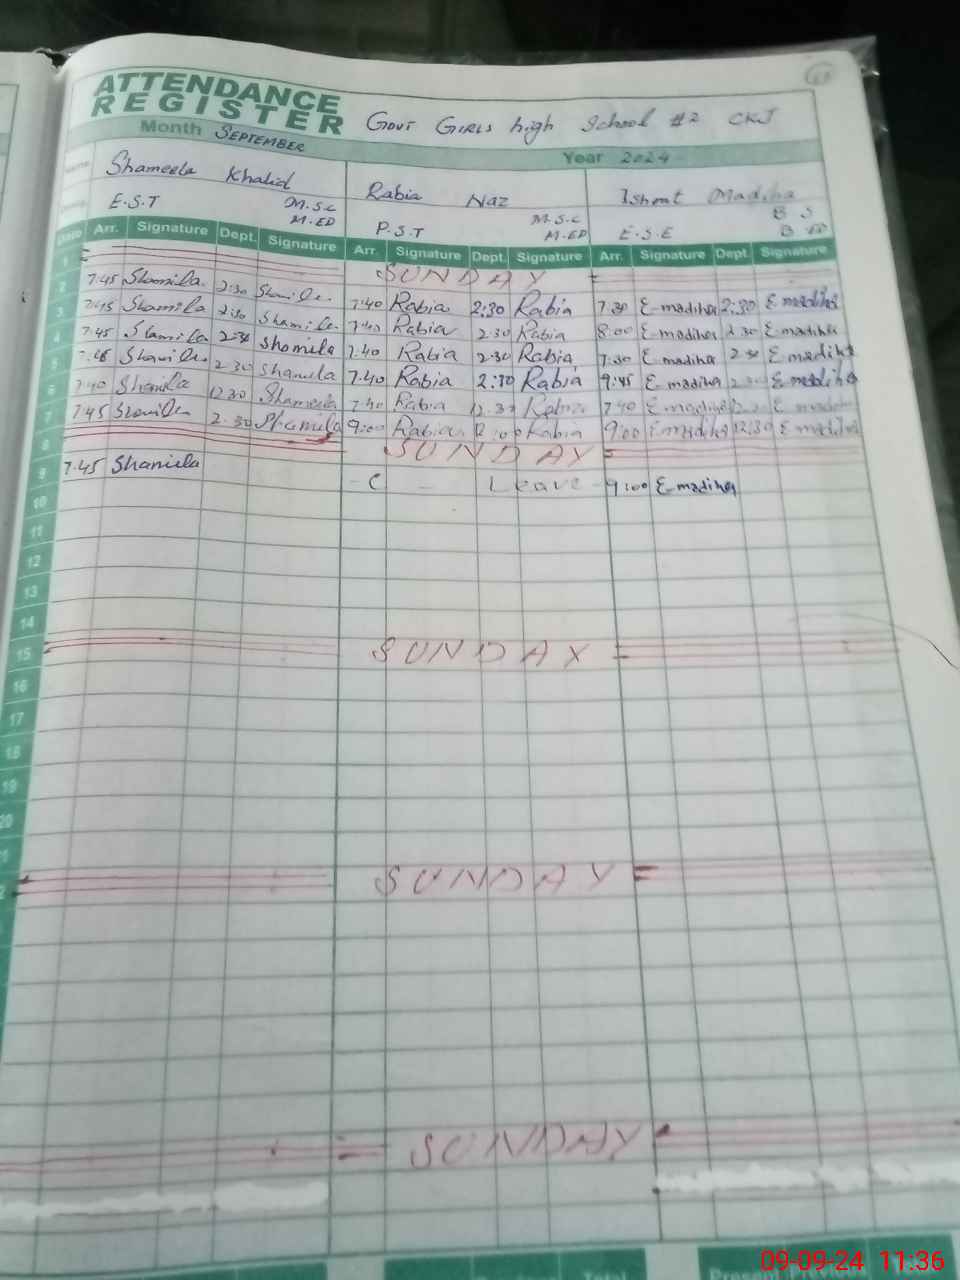 ATTENDANCE
REGISTER
GOVT GIRLS high School #2 CKJ
Month SEPTEMBER Year 2024
Shameela Khalid Rabia Naz Ishrat Madiha
E.S.T M.SC M.ED P.S.T M.S.C M.ED E.S.E B S
Date Arr. Signature Dept. Signature Arr. Signature Dept. Signature Arr. Signature Dept. Signature
1 SUNDAY
2 7.45 Shamila 2:30 Shamila 7:40 Rabia 2:30 Rabia 7:30 E-madiha 2:30 E madiha
3 7.45 Shamila 2:30 Shamila 7:40 Rabia 2:30 Rabia 8:00 E-madiha 2 30 E-madiha
4 7.45 Shamila 2:30 Shamila 7:40 Rabia 2:30 Rabia 7:30 E madiha 2 30 E madiha
5 7.45 Shamila 2 30 Shamila 7.40 Rabia 2:30 Rabia 9:45 E madiha 2 30 E-madiha
6 7:40 Shamila 12:30 Shameela 7:40 Rabia 12:30 Rabia 7 40 E madiha 12:30 E madiha
7 7.45 Shamila 2:30 Shamila 9:00 Rabia 12:00 Rabia 9:00 E madiha 12:30 E madiha
8 SUNDAY
9 7.45 Shamila - C - Leave - 9:00 E-madiha
10
11
12
13
14
15 SUNDAY
16
17
18
19
20
21
22 SUNDAY
SUNDAY
Total
09-09-24 11:36